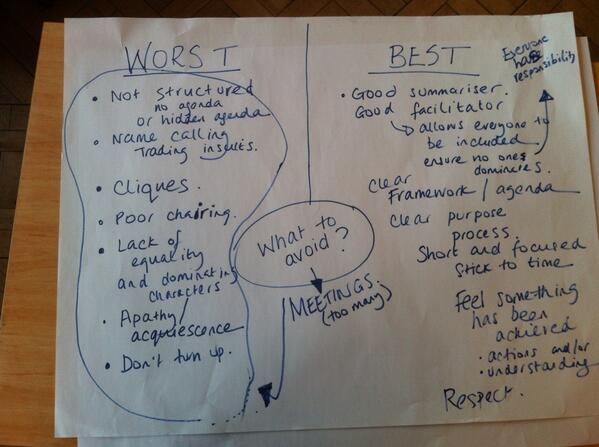 WORST
• Not structured
no agenda
or hidden agenda
• Name calling
Trading insults.
• Cliques.
• Poor chairing.
• Lack of
equality
and dominating
characters
• Apathy/
acquiescence
• Don't turn up.
What to
avoid?
MEETINGS.
(too many)
BEST
Everyone
has
responsibility
• Good summariser.
Good facilitator
allows everyone to
be included
ensure no one
dominates.
Clear
Framework / agenda
Clear purpose
process.
Short and focused
stick to time
Feel something
has been
achieved
• actions and/or
• understanding
Respect.